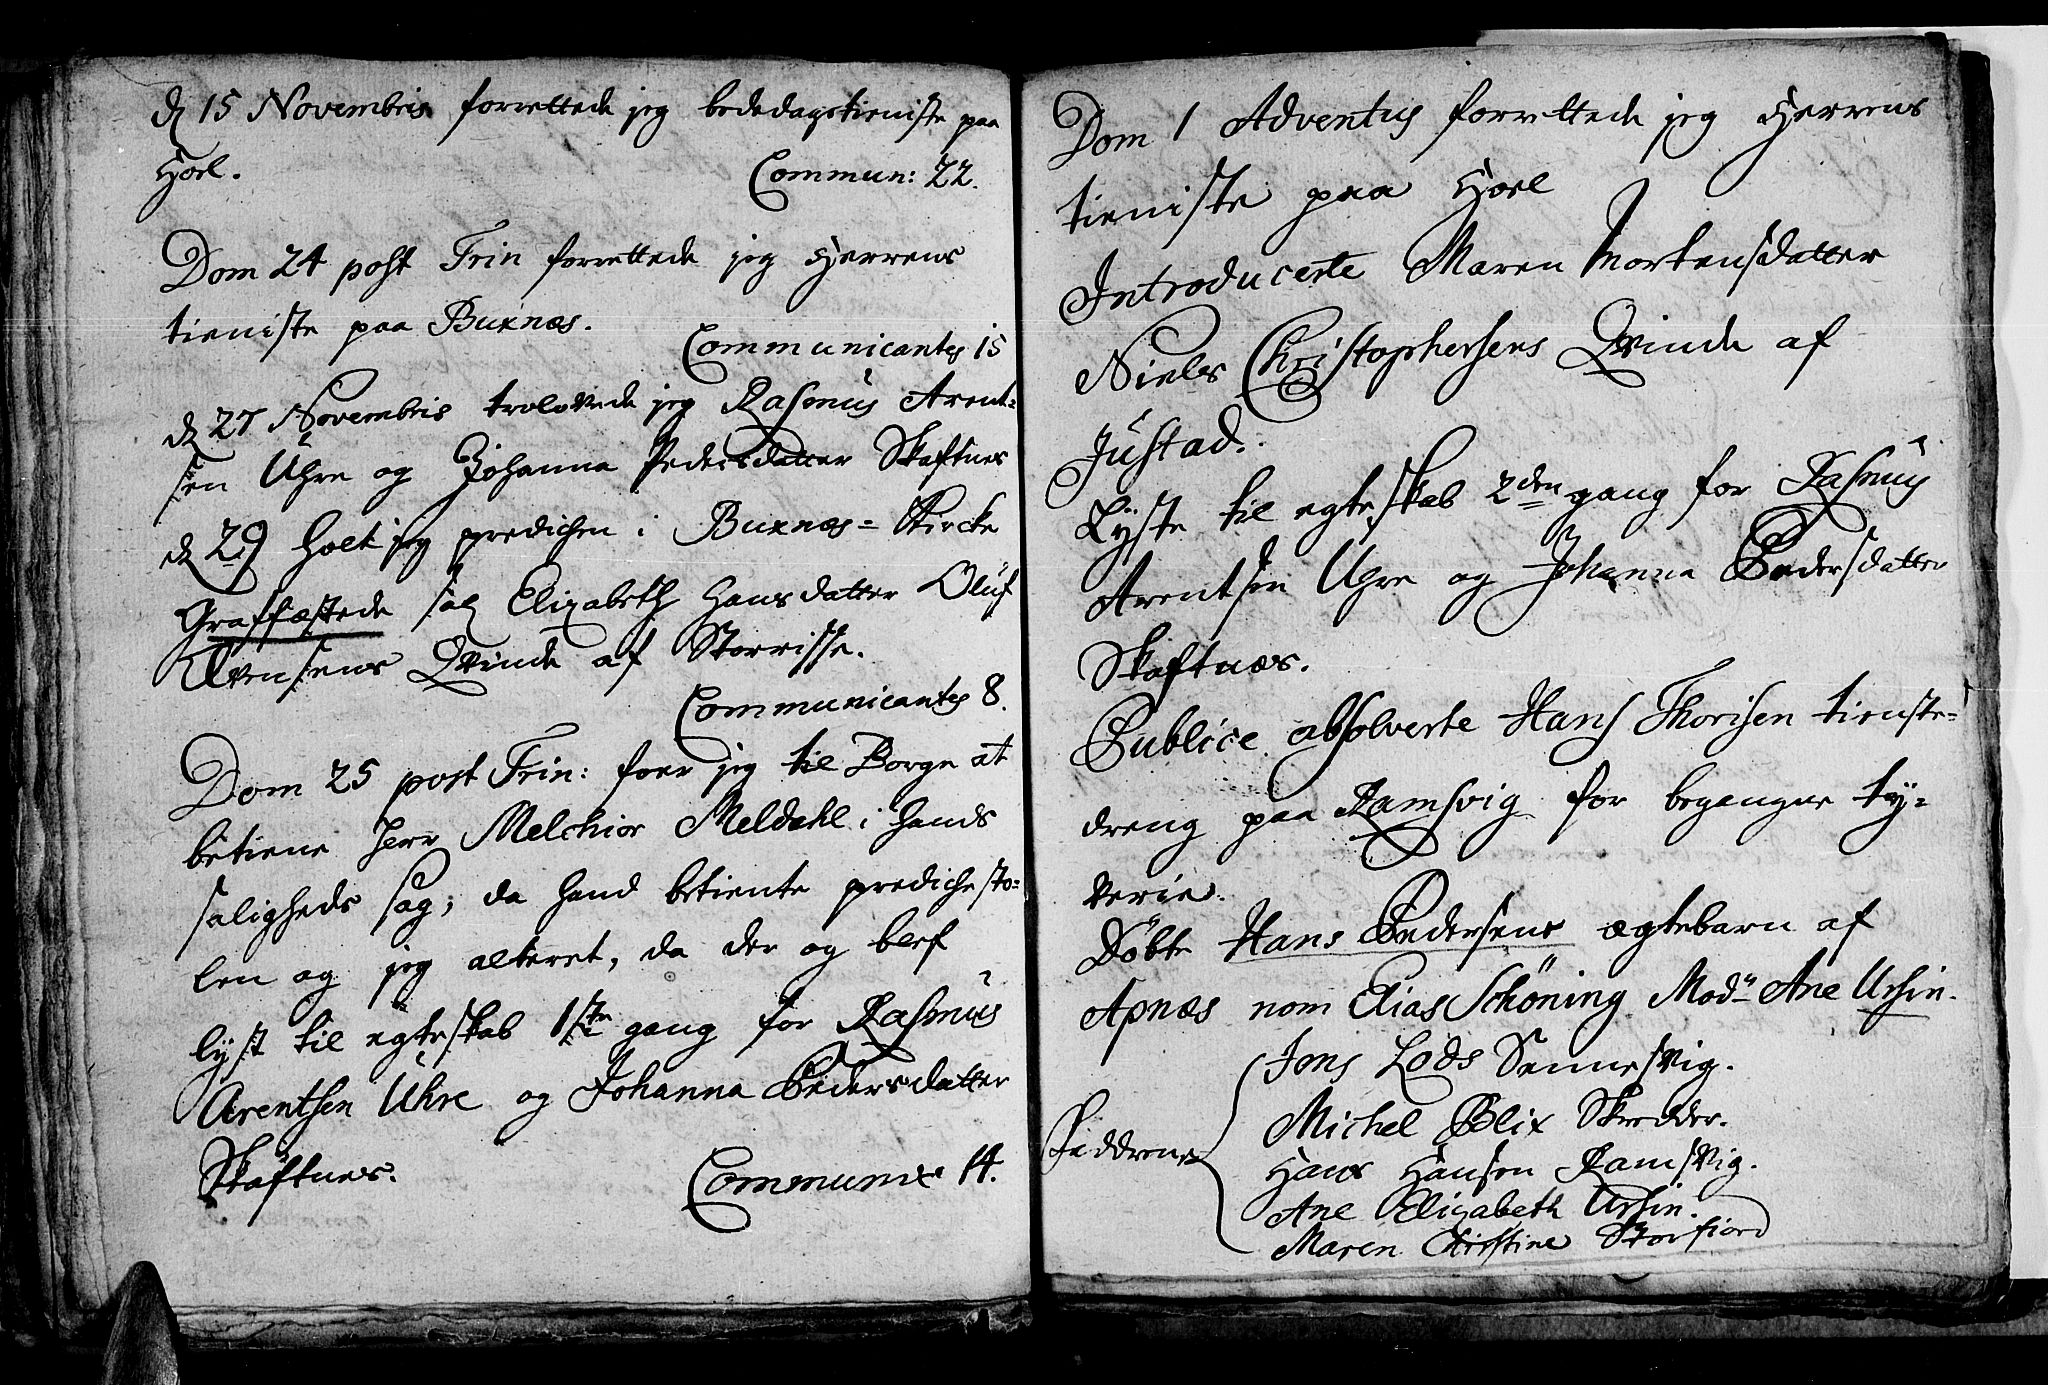 d 15 Novembris forrettede jeg bededagstieniste paa
Hoel.
Commun: 22.
Dom 24 post Trin forrettede jeg Herrens
tieniste paa Buxnæs.
Communicantes 15
d 27 Novembris trolovede jeg Rasmus Arent=
sen Uhre og Johanna Pedersdatter Skaftnes
d 29 holt jeg predichen i Buxnæs=Kircke
Graffæstede sal Elizabeth Hansdatter Oluf
Evensens Qvinde af Storrisse.
Communicantes 8.
Dom 25 post Trin: foer jeg til Borge at
betiene Herr Melchior Meldahl i hands
saligheds sag; da hand betiente prediche sto=
len og jeg alteret, da der og blef
lyst til egteskab 1ste gang for Rasmus
Arentsen Uhre og Johanna Pedersdatter
Skaftnes.
Communic 14.
Dom 1 Adventus forrettede jeg Herrens
tieniste paa Hoel
Introducerte Maren Mortensdatter
Niels Christophersens Qvinde af
Justad.
Lyste til egteskab 2den gang for Rasmus
Arentsen Uhre og Johanna Pedersdatter
Skaftnæs.
Publice absolverte Hans Thorisen tienste=
dreng paa Ramsvig for begangne ty=
verie.
Döbte Hans Pedersens ægtebarn af
Apnæs nom Elias Schöning Mod: Ane Ursin.
Faddrene
Jens Lods Sennesvig.
Michel Blix Skredder.
Hans Hansen Ramsvig.
Ane Elizabeth Ursin.
Maren Christine Storfiord